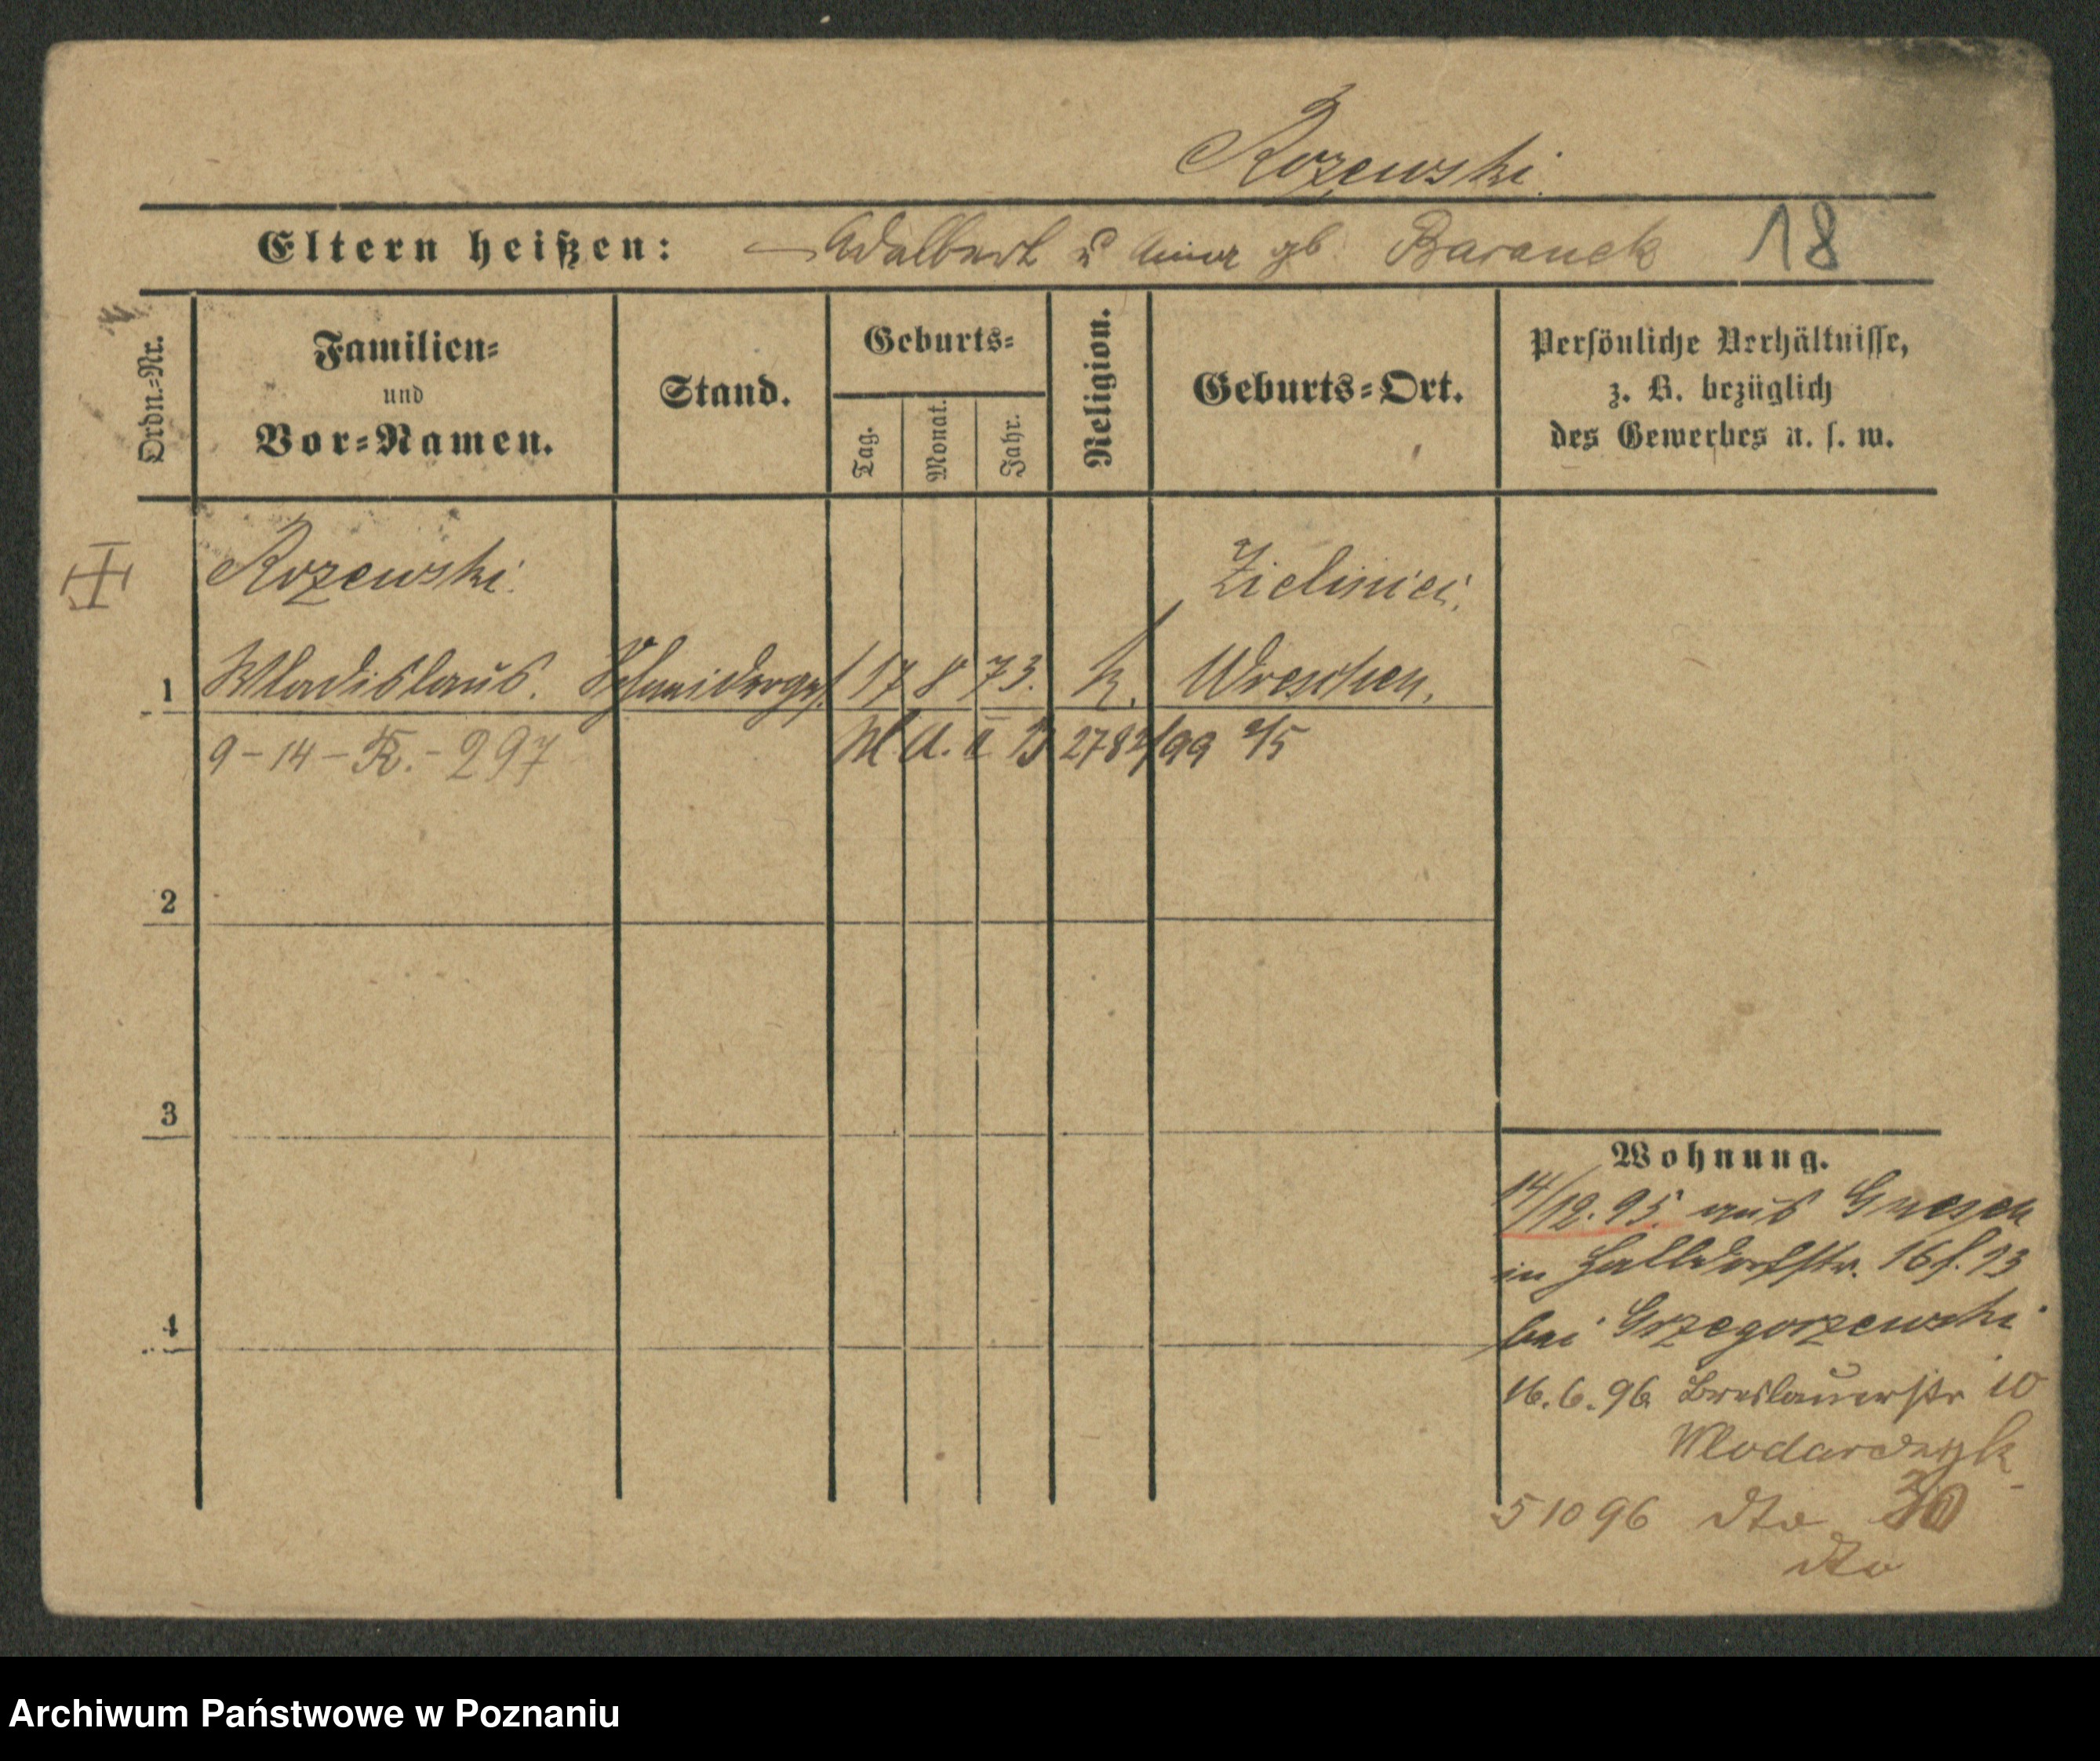 Rozewski.
Eltern heißen: Adalbert u Anna gb. Baranek 18
Ordn.-Nr.
Familien-
und
Vor-Namen.
Stand.
Geburts-
Tag.
Monat.
Jahr.
Religion.
Geburts-Ort.
Persönliche Verhältnisse,
z. B. bezüglich
des Gewerbes u. s. w.
Rozewski. Zielinici.
1 Wladislaus. Schneiderges. 17 8 73. k. Wreschen.
9-14-R.-297 M A. II B 2782/99 2/5
2
3
4
Wohnung.
14/12.95 aus Gnesen
in Halldorfstr. 16 13
bei Grzegorzewski
16.6.96 Breslauerstr 10
Wlodarczyk
5 10 96 dto 30
dto
Archiwum Państwowe w Poznaniu